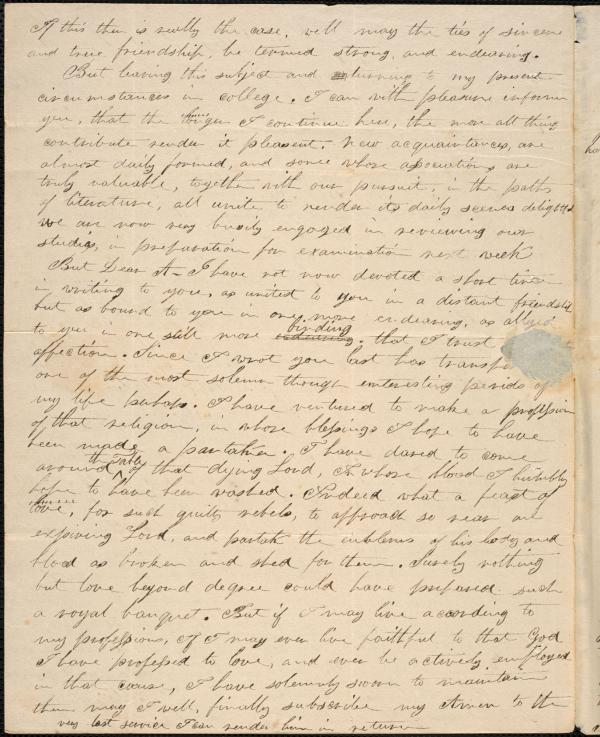 If this then is really the case, well may the ties of sincere
and true friendship, be termed strong, and endearing.
But leaving this subject and turning to my present
circumstances in college. I can with pleasure inform
you, that the longer I continue here, the more all things
contribute render it pleasant. New acquaintances, are
almost daily formed, and some whose associations are
truly valuable, together with our pursuit, in the paths
of literature, all unite to render its daily scenes delightful
We are now very busily engaged in reviewing our
studies, in preparation for examination next week
But Dear A— I have not now devoted a short time
in writing to you, as united to you in a distant friendship
but as bound to you in one, more endearing, as allyed
to you in one still more binding. that I trust
affection. Since I wrot you last has transp
one of the most solemn though enteresting periods of
my life perhaps. I have ventured to make a profession
of that religion, in whose blessings I hope to have
been made a partaker. I have dared to come
around the table of that dying Lord, In whose blood I humbly
hope to have been washed. Indeed what a feast of
love, for such guilty rebels, to approach so near an
expiring Lord, and partak the emblems of his body and
blood as broken and shed for them. Surely nothing
but love beyond degree could have prepared such
a royal banquet. But if I may live according to
my professions, If I may ever live faithful to that God
I have professed to love, and ever be actively employed
in that cause, I have solemnly sworn to maintain
then may I well, finally subscribe my Amen to the
very last service I can render him in return